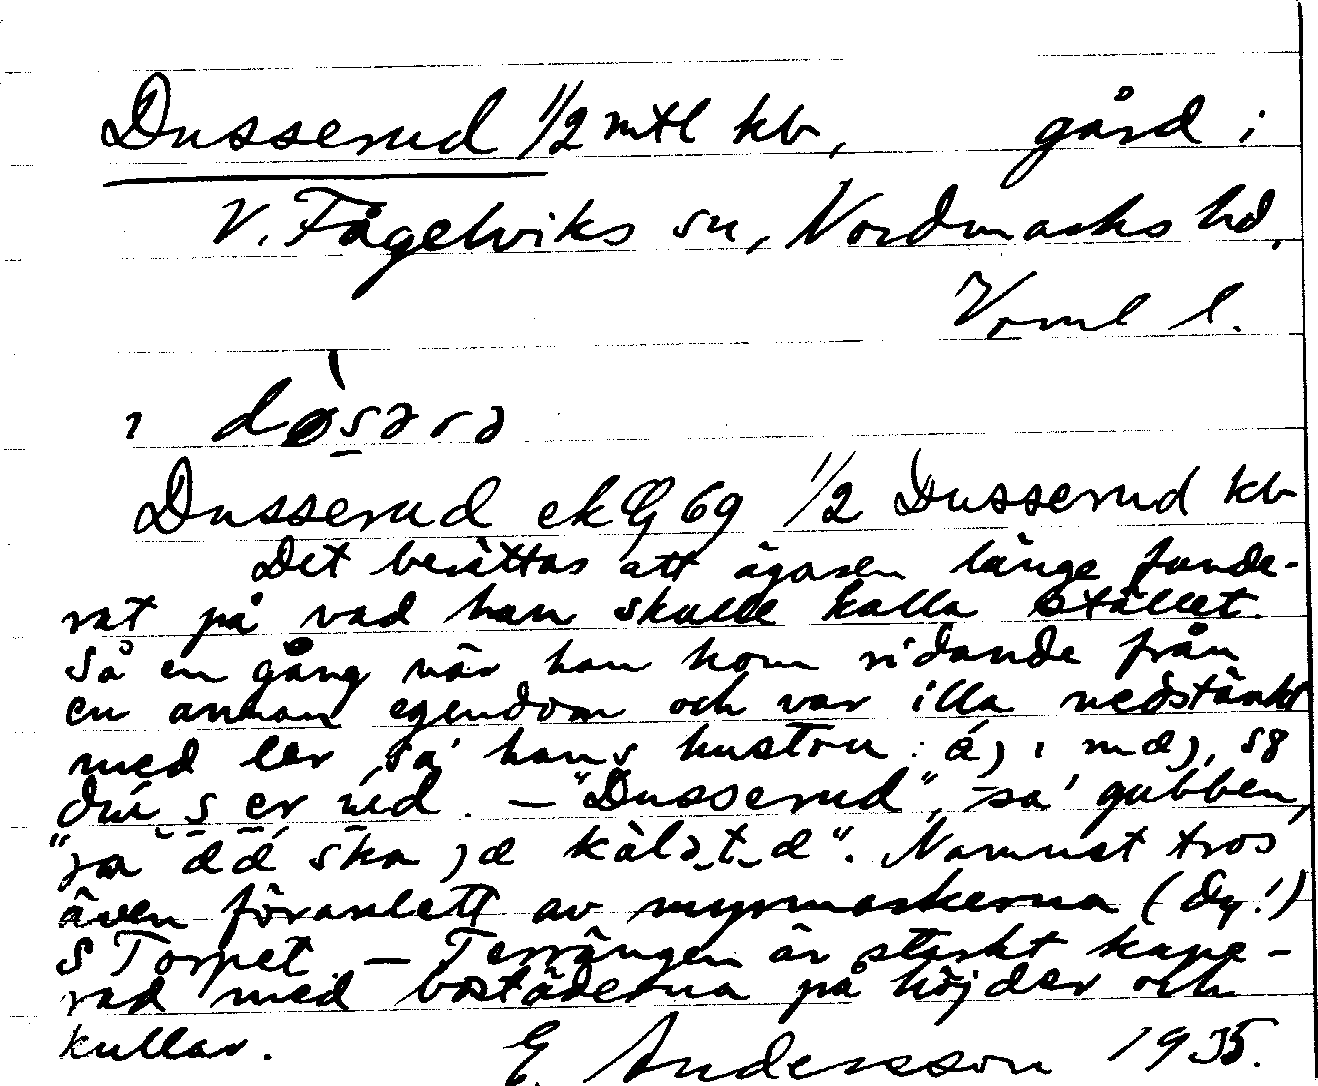 Dusserud 1/2 mtl kb, gård i
V. Fågelviks sn, Nordmarks hd,
Värml l.
ı døs̱ərə
Dusserud ek G 69 1/2 Dusserud kb
Det berättas att ägaren länge funde-
rat på vad han skulle kalla stället.
Så en gång när han kom ridande från
en annan egendom och var illa nedstänkt
med ler sa' hans hustru:
"Dusserud", sa' gubben,
"ja ska Namnet tros
även föranlett av myrmarkerna (dy!)
S Torpet. — Terrängen är starkt kupe-
rad med bostäderna på höjder och
kullar.
E. Andersson 1935.